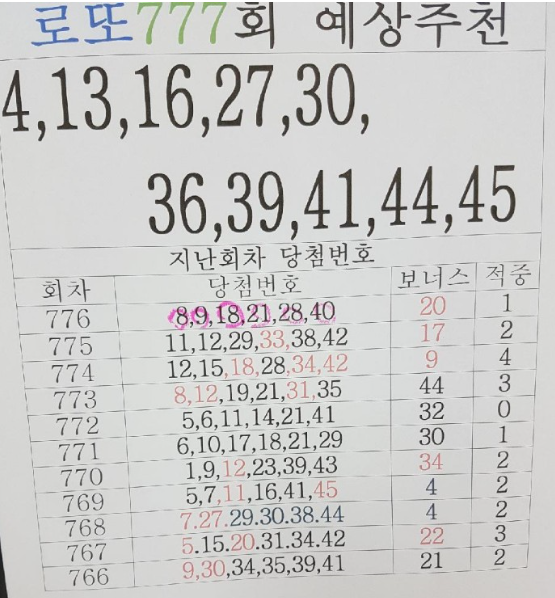 로또777회 예상추천
4,13,16,27,30,
36,39,41,44,45
지난회차 당첨번호
회차 당첨번호 보너스 적중
776 8,9,18,21,28,40 20 1
775 11,12,29,33,38,42 17 2
774 12,15,18,28,34,42 9 4
773 8,12,19,21,31,35 44 3
772 5,6,11,14,21,41 32 0
771 6,10,17,18,21,29 30 1
770 1,9,12,23,39,43 34 2
769 5,7,11,16,41,45 4 2
768 7.27.29.30.38.44 4 2
767 5.15.20.31.34.42 22 3
766 9,30,34,35,39,41 21 2